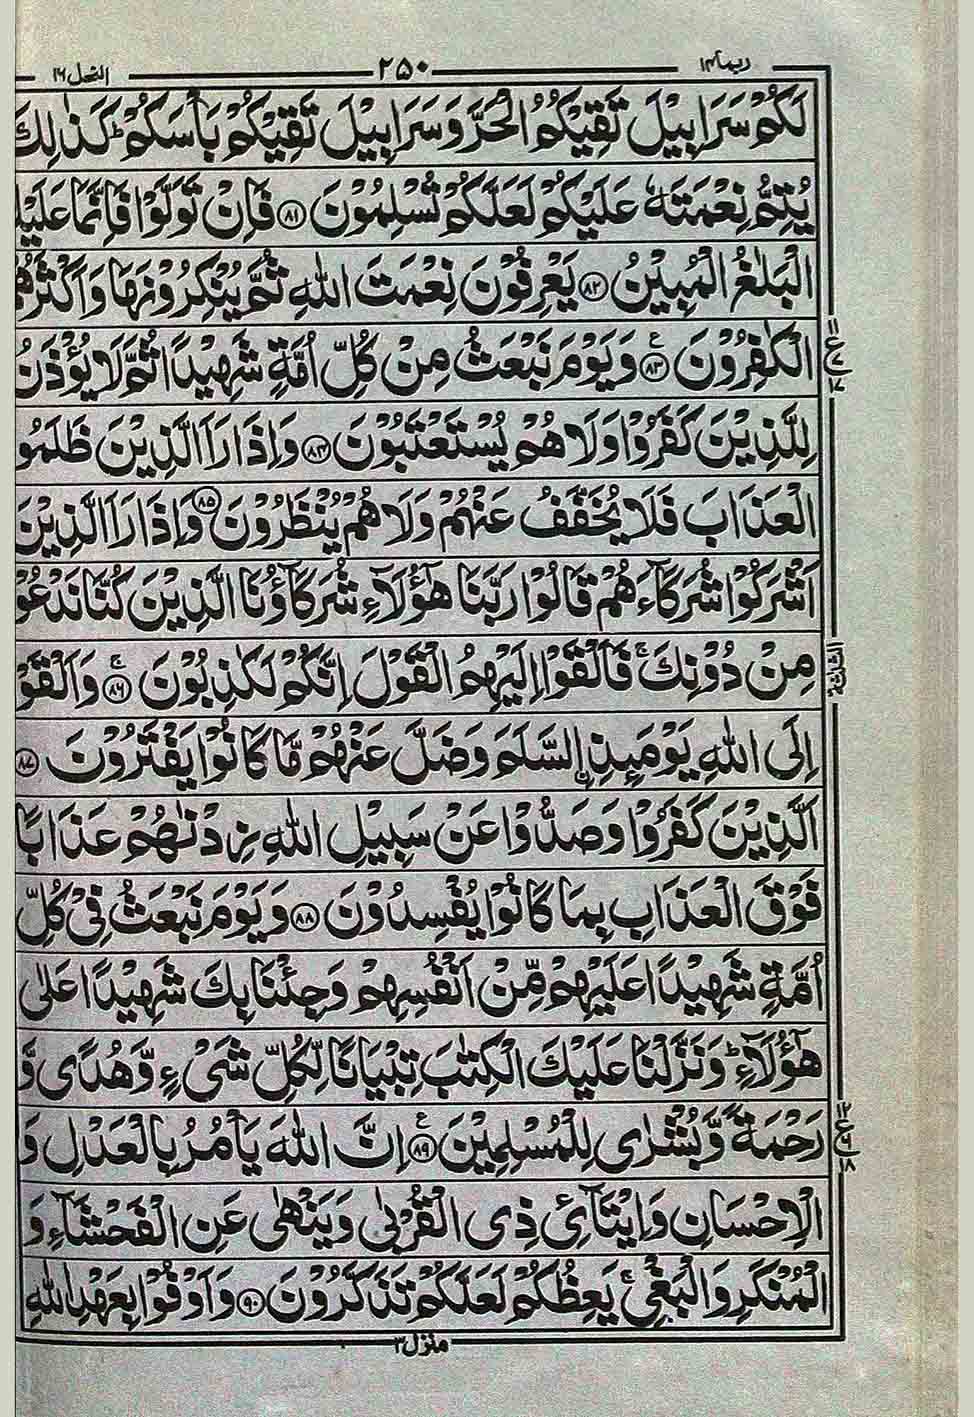 النحل ١٦
٢٥٠
ربما ١٤
لَكُمْ سَرَابِيْلَ تَقِيْكُمُ الْحَرَّ وَسَرَابِيْلَ تَقِيْكُمْ بَاْسَكُمْ ؕ كَذٰلِكَ
يُتِمُّ نِعْمَتَهٗ عَلَيْكُمْ لَعَلَّكُمْ تُسْلِمُوْنَ ۝٨١ فَاِنْ تَوَلَّوْا فَاِنَّمَا عَلَيْكَ
الْبَلٰغُ الْمُبِيْنُ ۝٨٢ يَعْرِفُوْنَ نِعْمَتَ اللّٰهِ ثُمَّ يُنْكِرُوْنَهَا وَاَكْثَرُهُمُ
الْكٰفِرُوْنَ ۝٨٣ وَيَوْمَ نَبْعَثُ مِنْ كُلِّ اُمَّةٍ شَهِيْدًا ثُمَّ لَا يُؤْذَنُ
لِلَّذِيْنَ كَفَرُوْا وَلَا هُمْ يُسْتَعْتَبُوْنَ ۝٨٤ وَاِذَا رَاَ الَّذِيْنَ ظَلَمُوا
الْعَذَابَ فَلَا يُخَفَّفُ عَنْهُمْ وَلَا هُمْ يُنْظَرُوْنَ ۝٨٥ وَاِذَا رَاَ الَّذِيْنَ
اَشْرَكُوْا شُرَكَآءَهُمْ قَالُوْا رَبَّنَا هٰٓؤُلَآءِ شُرَكَآؤُنَا الَّذِيْنَ كُنَّا نَدْعُوْا
مِنْ دُوْنِكَ ۚ فَاَلْقَوْا اِلَيْهِمُ الْقَوْلَ اِنَّكُمْ لَكٰذِبُوْنَ ۝٨٦ۚ وَاَلْقَوْا
اِلَى اللّٰهِ يَوْمَىِٕذِ ِۨالسَّلَمَ وَضَلَّ عَنْهُمْ مَّا كَانُوْا يَفْتَرُوْنَ ۝٨٧
الَّذِيْنَ كَفَرُوْا وَصَدُّوْا عَنْ سَبِيْلِ اللّٰهِ زِدْنٰهُمْ عَذَابًا
فَوْقَ الْعَذَابِ بِمَا كَانُوْا يُفْسِدُوْنَ ۝٨٨ وَيَوْمَ نَبْعَثُ فِيْ كُلِّ
اُمَّةٍ شَهِيْدًا عَلَيْهِمْ مِّنْ اَنْفُسِهِمْ وَجِئْنَا بِكَ شَهِيْدًا عَلٰى
هٰٓؤُلَآءِ ؕ وَنَزَّلْنَا عَلَيْكَ الْكِتٰبَ تِبْيَانًا لِّكُلِّ شَيْءٍ وَّهُدًى وَّ
رَحْمَةً وَّبُشْرٰى لِلْمُسْلِمِيْنَ ۝٨٩ اِنَّ اللّٰهَ يَاْمُرُ بِالْعَدْلِ وَ
الْاِحْسَانِ وَاِيْتَآئِ ذِى الْقُرْبٰى وَيَنْهٰى عَنِ الْفَحْشَآءِ وَ
الْمُنْكَرِ وَالْبَغْيِ ۚ يَعِظُكُمْ لَعَلَّكُمْ تَذَكَّرُوْنَ ۝٩٠ وَاَوْفُوْا بِعَهْدِ اللّٰهِ
ع
١١
٧
١٧
الثلثة
ع
١٢
٦
١٨
منزل ٣